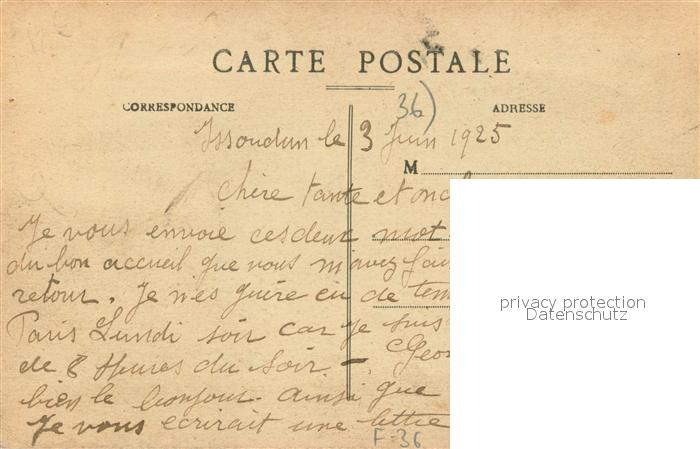 CARTE POSTALE
CORRESPONDANCE
36)
ADRESSE
Issoudun le 3 Juin 1925
M
chère tante et oncl
Je vous envoie ces deux mot
du bon accueil que vous m'avez fai
retour. Je n'es guère eu de tem
Paris Lundi soir car je suis
de 8 Heures du Soir -, Geor
bien le bonjour ainsi que
Je vous ecrirait une lettre
F-36
privacy protection
Datenschutz